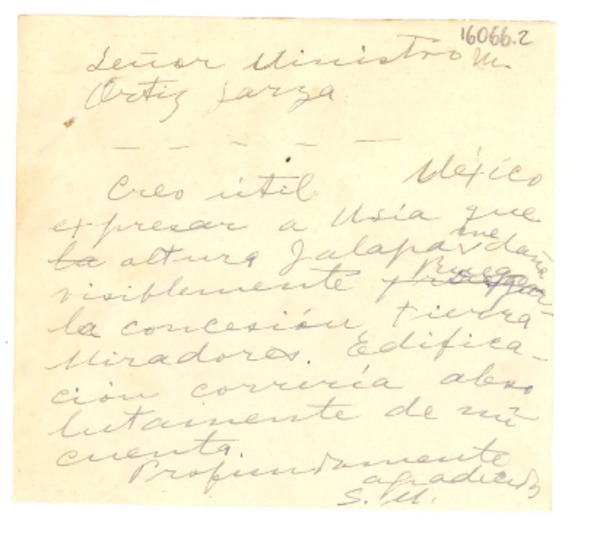 16066.2
Señor Ministro M.
Ortiz Garza
México
Creo útil
expresar a Usía que
la altura Jalapa me daña
visiblemente Ruego
la concesión tierra
Miradores. Edifica-
ción correría abso
lutamente de mi
cuenta.
Profundamente
agradecida
S. M.